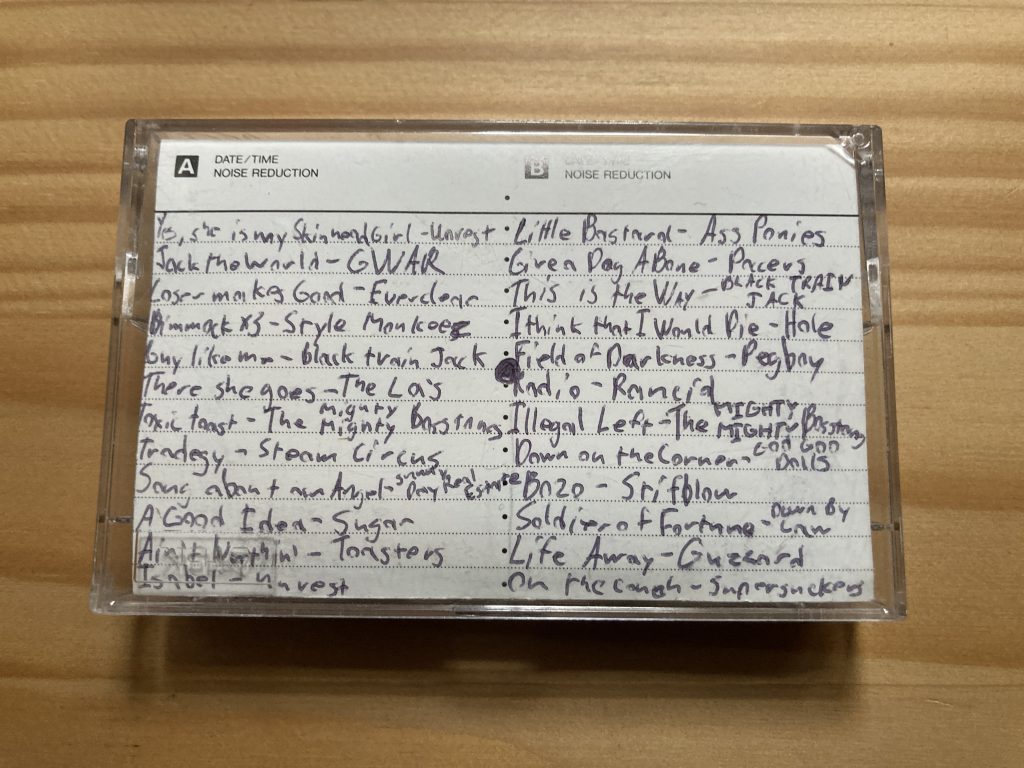 A DATE/TIME
NOISE REDUCTION
Yes, she is my Skinhead Girl - Unrest
Jack the World - GWAR
Loser makes Good - Everclear
Dimmock x3 - Style Monkeez
Guy like me - black train Jack
There she goes - The La's
Toxic toast - The Mighty Mighty Bosstones
Tradegy - Steam Circus
Song about an Angel - Sunny Day Real Estate
A Good Idea - Sugar
Ain't Nuthin' - Toasters
Isabel - Unrest
B DATE/TIME
NOISE REDUCTION
Little Bastard - Ass Ponies
Give a Dog A Bone - Pacers
This is the Way - BLACK TRAIN JACK
I think that I Would Die - Hole
Field of Darkness - Pegboy
Radio - Rancid
Illegal Left - The MIGHTY MIGHTY Bosstones
Down on the Corner - GOO GOO Dolls
Bozo - Stifblow
Soldier of Fortune - Down By Law
Life Away - Guzzard
On the couch - Supersuckers